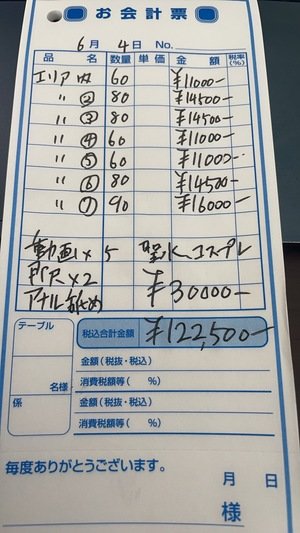 お会計票
6月 4日 No.
品名 数量 単価 金額 税率(%)
エリア内 60 ¥11000-
〃 ② 80 ¥14500-
〃 ③ 80 ¥14500-
〃 ④ 60 ¥11000-
〃 ⑤ 60 ¥11000-
〃 ⑥ 80 ¥14500-
〃 ⑦ 90 ¥16000-
動画×5 聖水、コスプレ
×2 ¥30000-
アナル舐め
テーブル 税込合計金額 ¥122,500-
金額(税抜・税込)
名様 消費税額等( %)
係 金額(税抜・税込)
消費税額等( %)
毎度ありがとうございます。
月 日
様